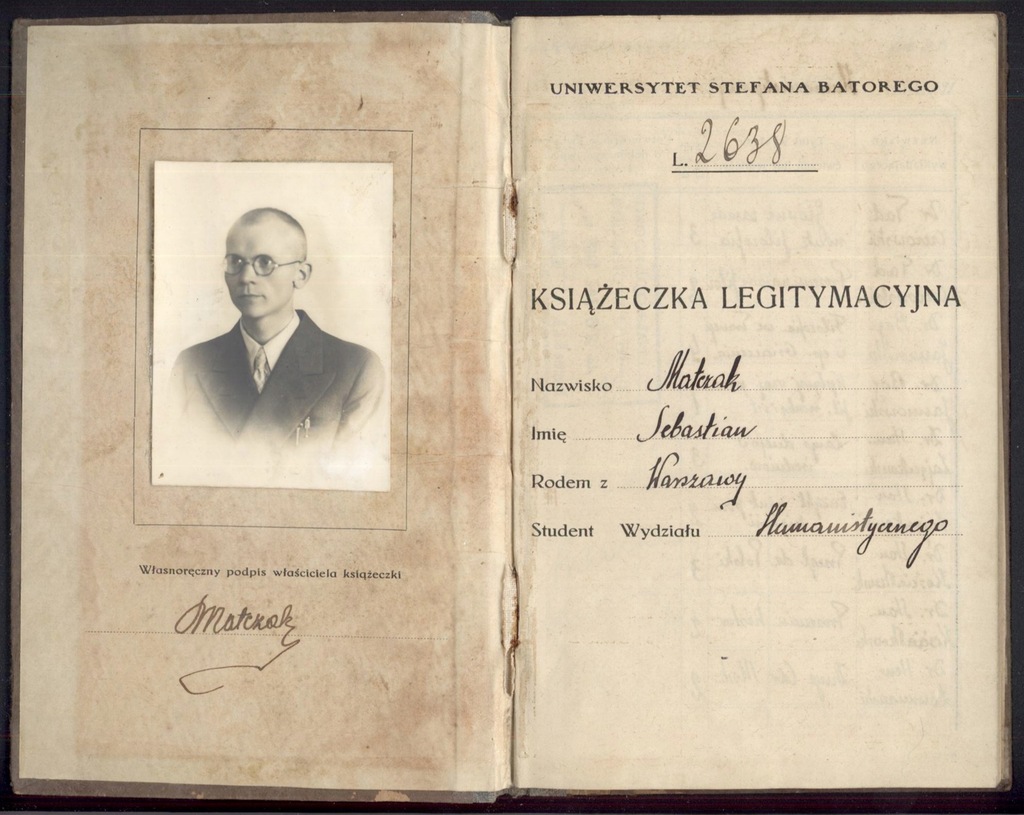 Własnoręczny podpis właściciela książeczki
Matczak
UNIWERSYTET STEFANA BATOREGO
L. 2638
KSIĄŻECZKA LEGITYMACYJNA
Nazwisko Matczak
Imię Sebastian
Rodem z Warszawy
Student Wydziału Humanistycznego